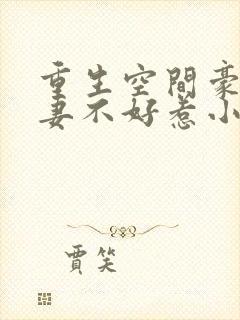 重生空間豪
妻不好惹小
賈笑